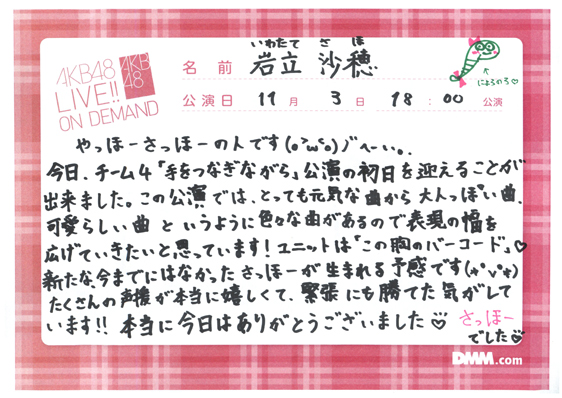 AKB48
LIVE!!
ON DEMAND
AKB
48
いわたて さほ
名前 岩立 沙穂
にょろのろ♡
公演日 11月 3日 18:00 公演
やっほーさっほーの人です(o´ω`o)ﾉﾞへーい。
今日、チーム4「手をつなぎながら」公演の初日を迎えることが
出来ました。この公演では、とっても元気な曲から大人っぽい曲、
可愛らしい曲というように色々な曲があるので表現の幅を
広げていきたいと思っています!ユニットは「この胸のバーコード」♡
新たな、今までにはなかったさっほーが生まれる予感です(*°∨°*)
たくさんの声援が本当に嬉しくて、緊張にも勝てた気がして
います!!本当に今日はありがとうございました♡
さっほー
でした♡
DMM.com